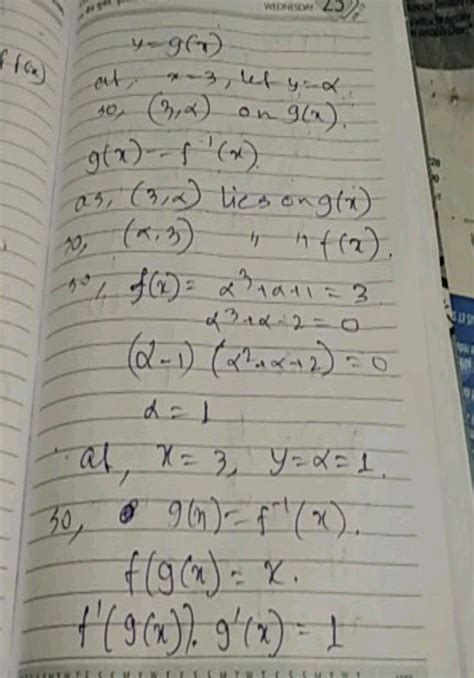 WEDNESDAY 25
f f(x)
y = g(x)
at, x = 3, let y = α
so, (3,α) on g(x).
g(x) = f⁻¹(x)
as, (3,α) lies on g(x)
so, (α,3) " " f(x).
so, f(x) = α³+α+1 = 3
α³+α-2 = 0
(α-1) (α²+α+2) = 0
α = 1
at, x = 3, y = α = 1.
so, g(x) = f⁻¹(x).
f(g(x) = x.
f'(g(x)). g'(x) = 1